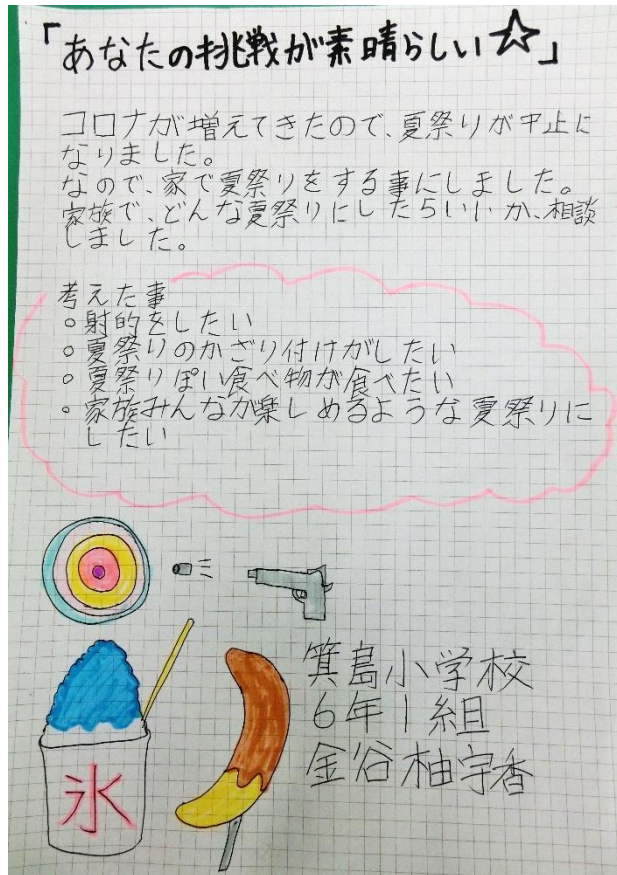 「あなたの挑戦が素晴らしい☆」
コロナが増えてきたので、夏祭りが中止に
なりました。
なので、家で夏祭りをする事にしました。
家族で、どんな夏祭りにしたらいいか、相談
しました。
考えた事
○射的をしたい
○夏祭りのかざり付けがしたい
○夏祭りぽい食べ物が食べたい
○家族みんなが楽しめるような夏祭りに
したい
氷
箕島小学校
6年1組
金谷柚宇香